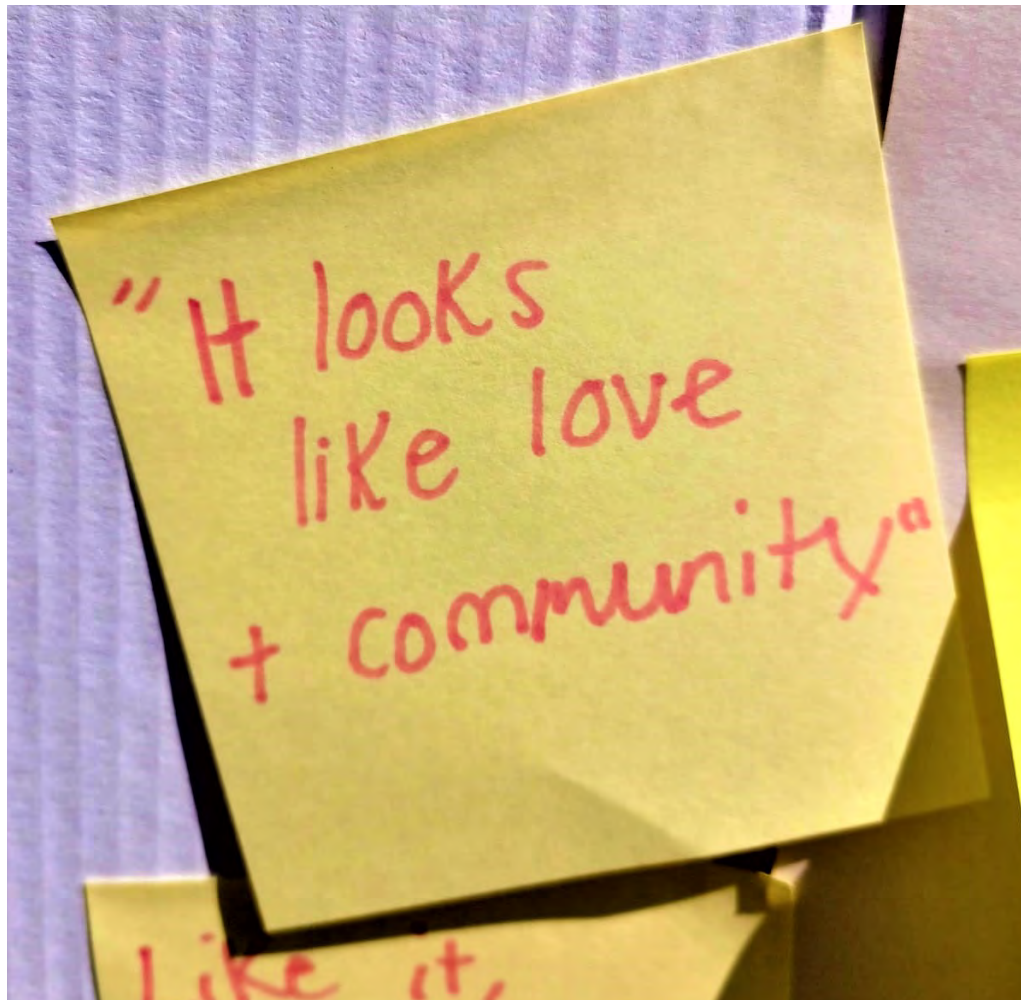 "It looks
like love
+ community"
Like it,